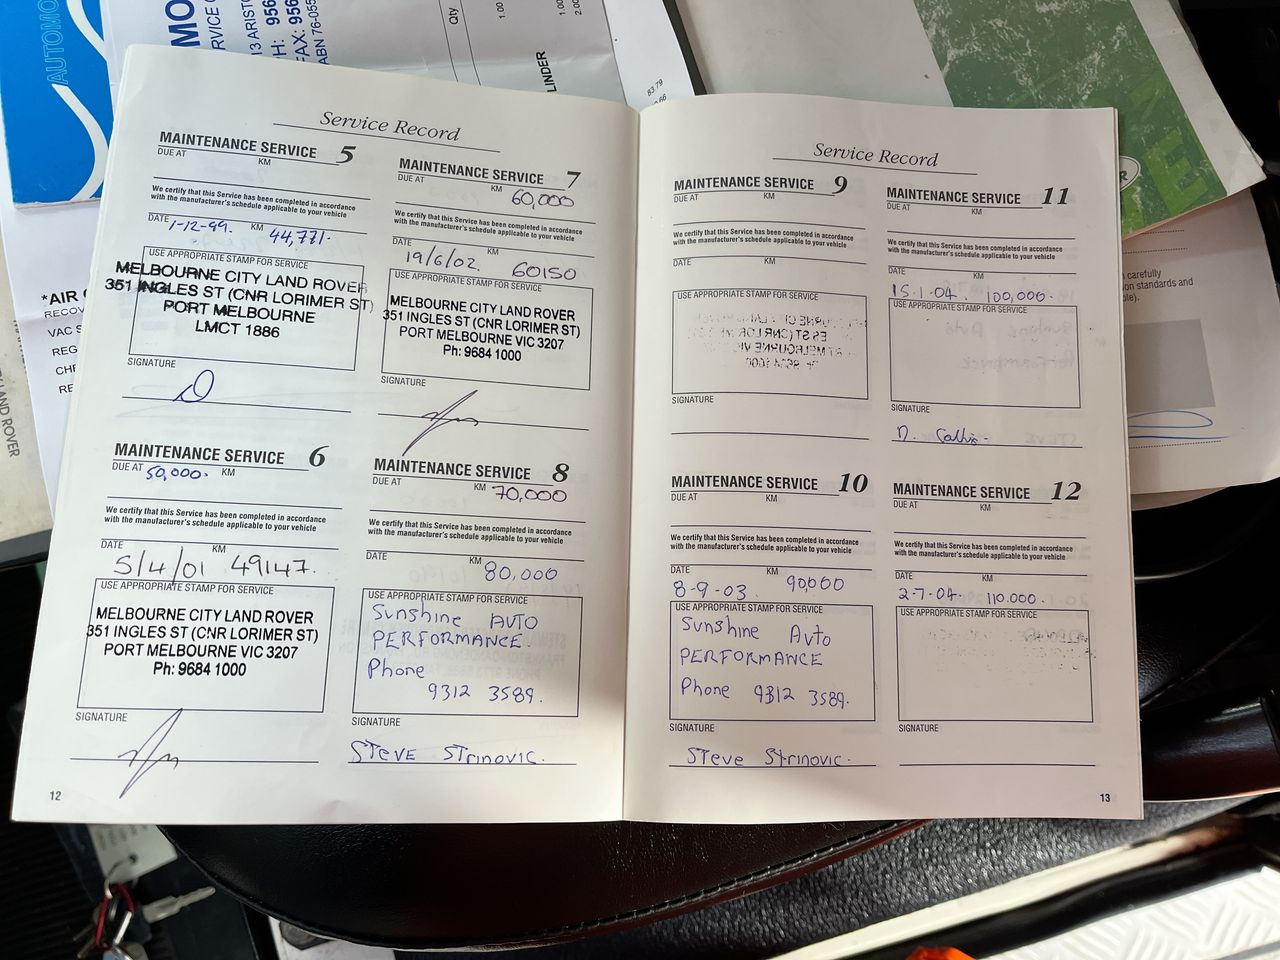 AUTOMO
MO
RVICE
13 ARISTO
PH: 956
FAX: 956
ABN 76-055
Qty
1.00
1.00
2.00
LINDER
83.79
*AIR
RECOV
VAC S
REG
CHE
RE
LAND ROVER
Service Record
MAINTENANCE SERVICE 5
DUE AT KM
We certify that this Service has been completed in accordance
with the manufacturer's schedule applicable to your vehicle
DATE 1-12-99. KM 44,771.
USE APPROPRIATE STAMP FOR SERVICE
MELBOURNE CITY LAND ROVER
351 INGLES ST (CNR LORIMER ST)
PORT MELBOURNE
LMCT 1886
SIGNATURE
MAINTENANCE SERVICE 6
DUE AT 50,000. KM
We certify that this Service has been completed in accordance
with the manufacturer's schedule applicable to your vehicle
DATE KM
5/4/01 49147.
USE APPROPRIATE STAMP FOR SERVICE
MELBOURNE CITY LAND ROVER
351 INGLES ST (CNR LORIMER ST)
PORT MELBOURNE VIC 3207
Ph: 9684 1000
SIGNATURE
12
MAINTENANCE SERVICE 7
DUE AT KM 60,000
We certify that this Service has been completed in accordance
with the manufacturer's schedule applicable to your vehicle
DATE KM
19/6/02. 60150
USE APPROPRIATE STAMP FOR SERVICE
MELBOURNE CITY LAND ROVER
351 INGLES ST (CNR LORIMER ST)
PORT MELBOURNE VIC 3207
Ph: 9684 1000
SIGNATURE
MAINTENANCE SERVICE 8
DUE AT KM 70,000
We certify that this Service has been completed in accordance
with the manufacturer's schedule applicable to your vehicle
DATE KM 80,000
USE APPROPRIATE STAMP FOR SERVICE
Sunshine AUTO
PERFORMANCE.
Phone
9312 3589.
SIGNATURE
STEVE STrinovic.
Service Record
MAINTENANCE SERVICE 9
DUE AT KM
We certify that this Service has been completed in accordance
with the manufacturer's schedule applicable to your vehicle
DATE KM
USE APPROPRIATE STAMP FOR SERVICE
SIGNATURE
MAINTENANCE SERVICE 10
DUE AT KM
We certify that this Service has been completed in accordance
with the manufacturer's schedule applicable to your vehicle
DATE KM 90,000
8-9-03.
USE APPROPRIATE STAMP FOR SERVICE
Sunshine Auto
PERFORMANCE
Phone 9312 3589.
SIGNATURE
STeve STrinovic.
MAINTENANCE SERVICE 11
DUE AT KM
We certify that this Service has been completed in accordance
with the manufacturer's schedule applicable to your vehicle
DATE KM
15.1.04. 100,000.
USE APPROPRIATE STAMP FOR SERVICE
SIGNATURE
MAINTENANCE SERVICE 12
DUE AT KM
We certify that this Service has been completed in accordance
with the manufacturer's schedule applicable to your vehicle
DATE KM
2-7-04. 110.000.
USE APPROPRIATE STAMP FOR SERVICE
SIGNATURE
13
carefully
on standards and
ble).